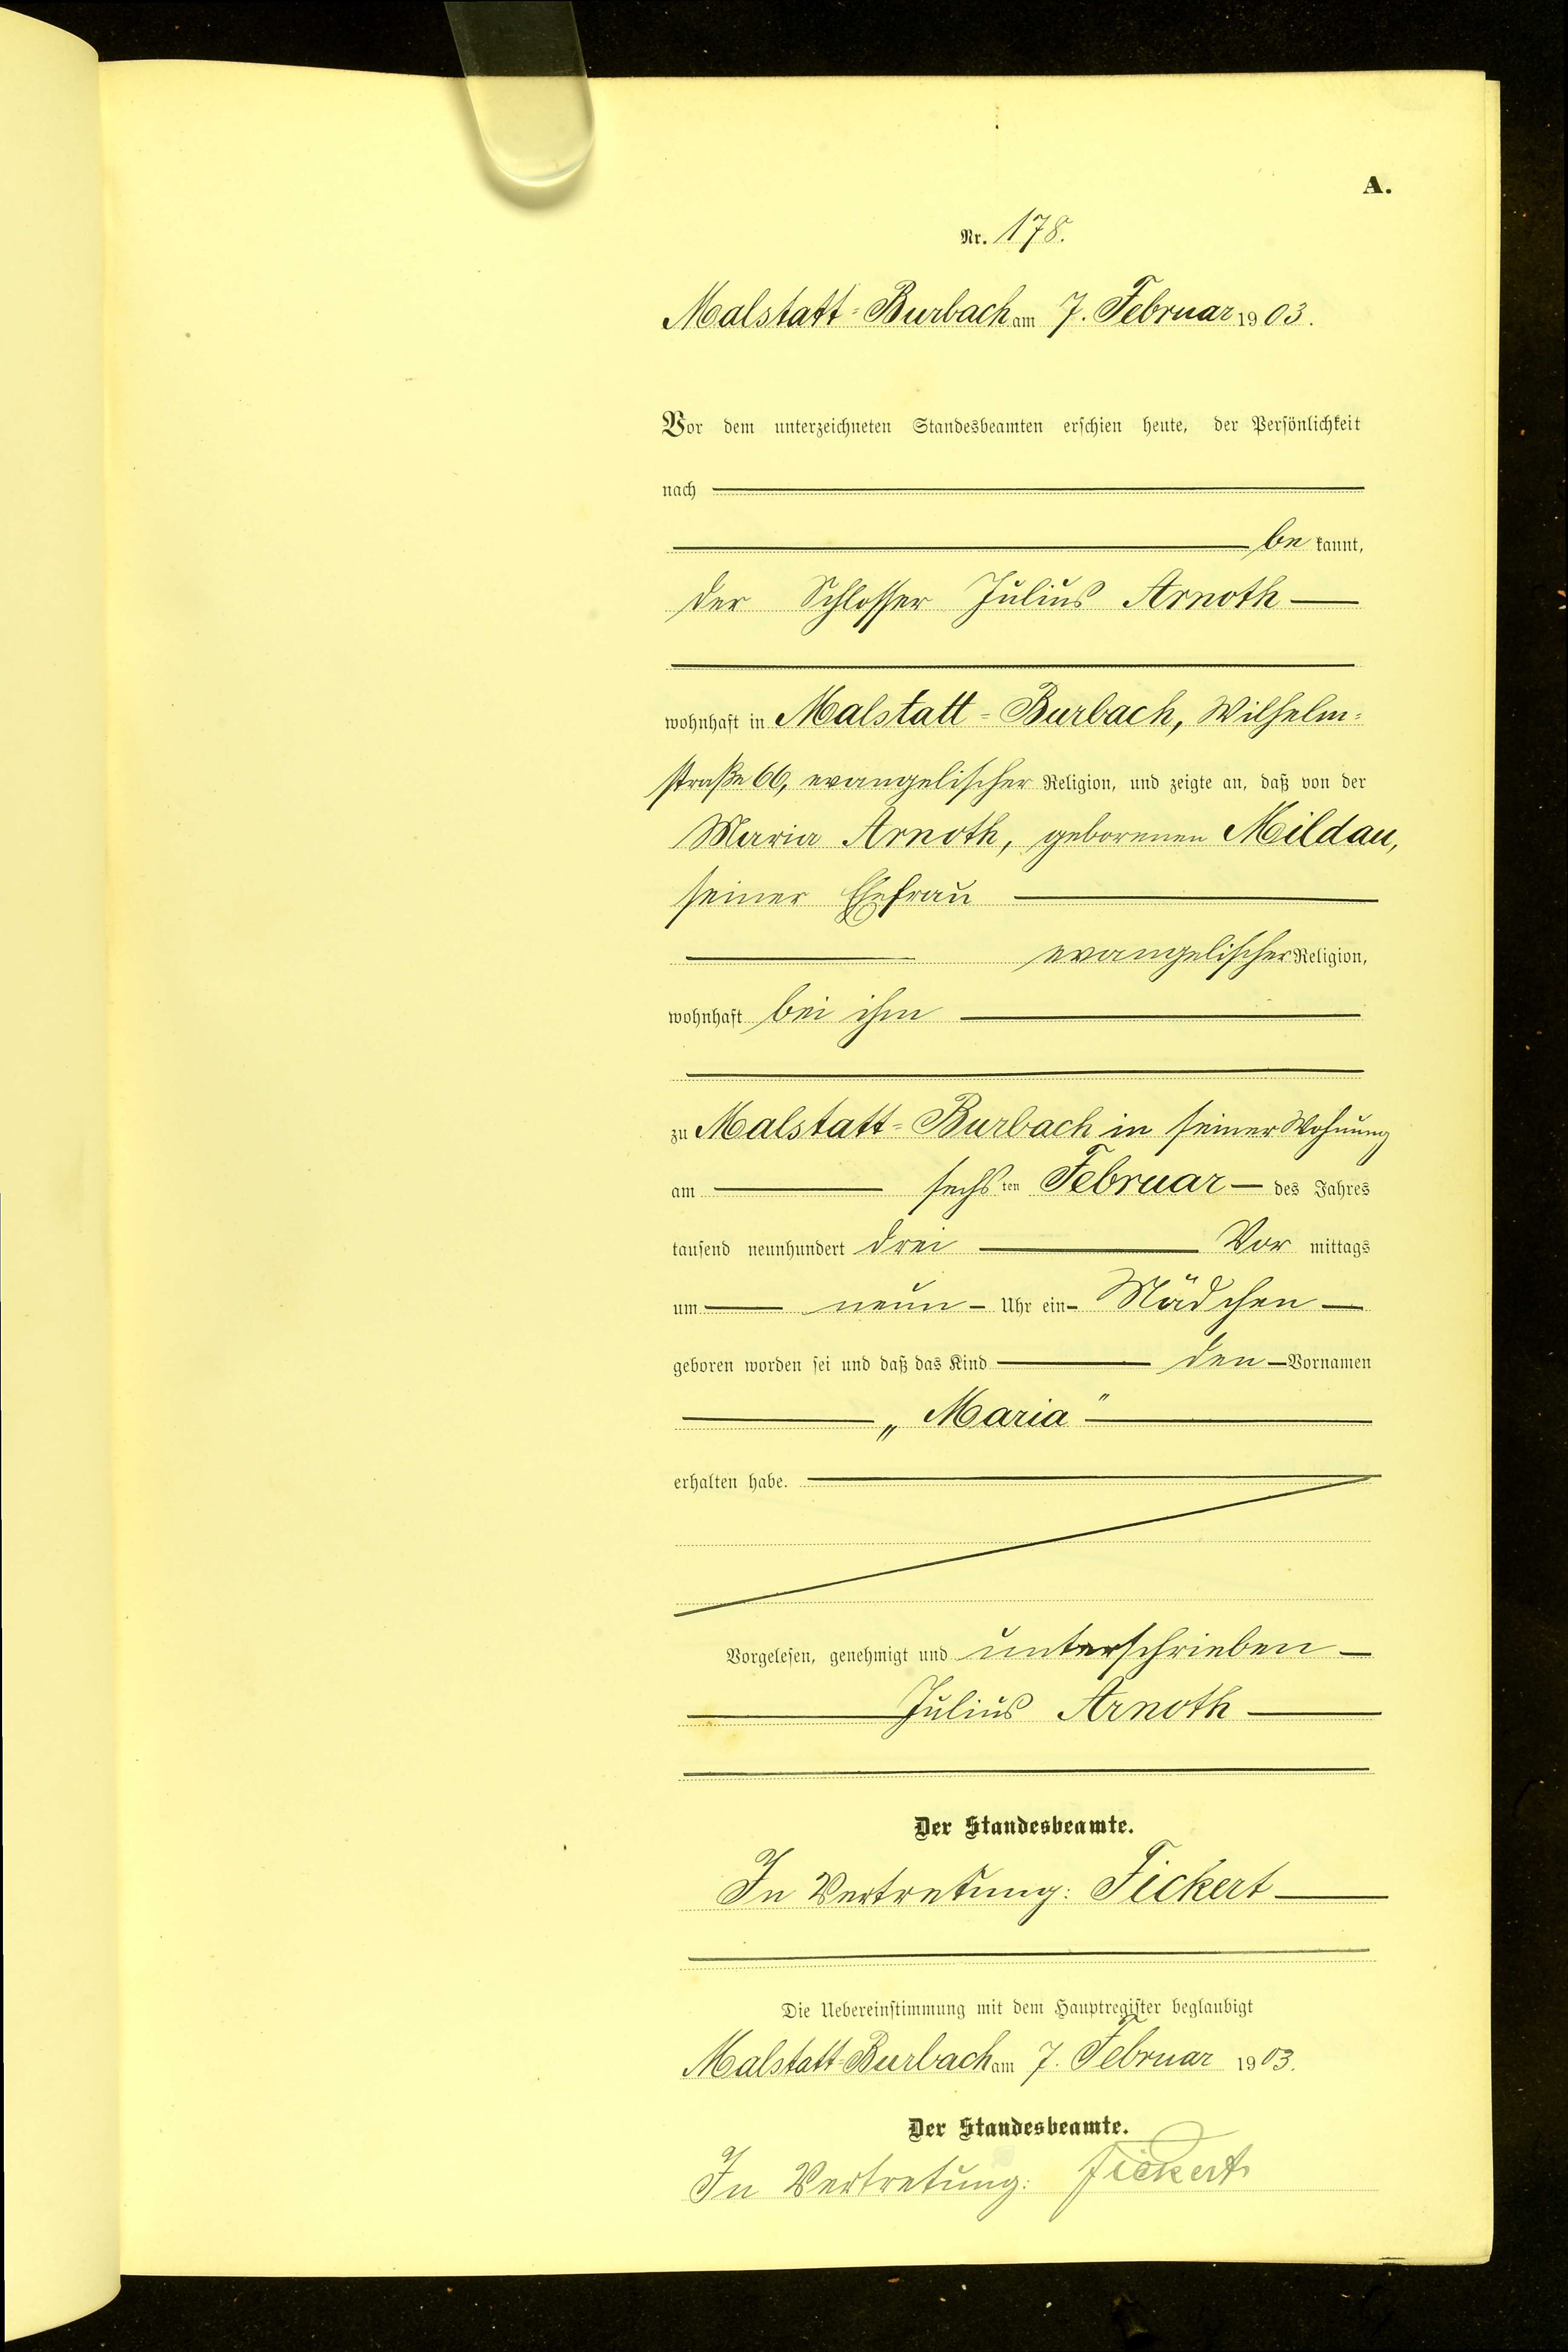 A.
Nr. 178.
Malstatt-Burbach am 7. Februar 1903.
Vor dem unterzeichneten Standesbeamten erschien heute, der Persönlichkeit
nach
be kannt,
der Schlosser Julius Arnoth
wohnhaft in Malstatt-Burbach, Wilhelm-
straße 66, evangelischer Religion, und zeigte an, daß von der
Maria Arnoth, geborenen Mildau,
seiner Ehefrau
evangelischer Religion,
wohnhaft bei ihm
zu Malstatt-Burbach in seiner Wohnung
am sechsten Februar des Jahres
tausend neunhundert drei Vor mittags
um neun Uhr ein Mädchen
geboren worden sei und daß das Kind den Vornamen
„Maria"
erhalten habe.
Vorgelesen, genehmigt und unterschrieben
Julius Arnoth
Der Standesbeamte.
In Vertretung: Fickert
Die Uebereinstimmung mit dem Hauptregister beglaubigt
Malstatt-Burbach am 7. Februar 1903.
Der Standesbeamte.
In Vertretung: Fickert